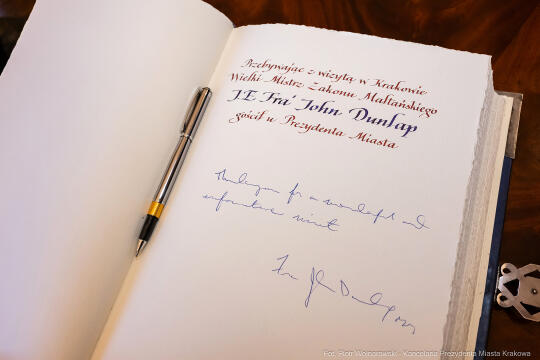 Przebywając z wizytą w Krakowie
Wielki Mistrz Zakonu Maltańskiego
J.E. Fra' John Dunlap
gościł u Prezydenta Miasta
Thank you for a wonderful and
informative visit
Fra John Dunlap
Fot. Piotr Wojnarowski - Kancelaria Prezydenta Miasta Krakowa